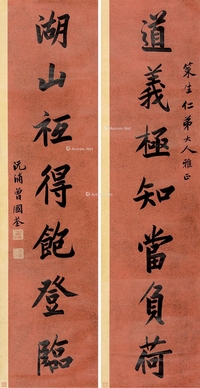 策生仁弟大人雅正
道義極知當負荷
湖山秪得飽登臨
沅浦曾國荃